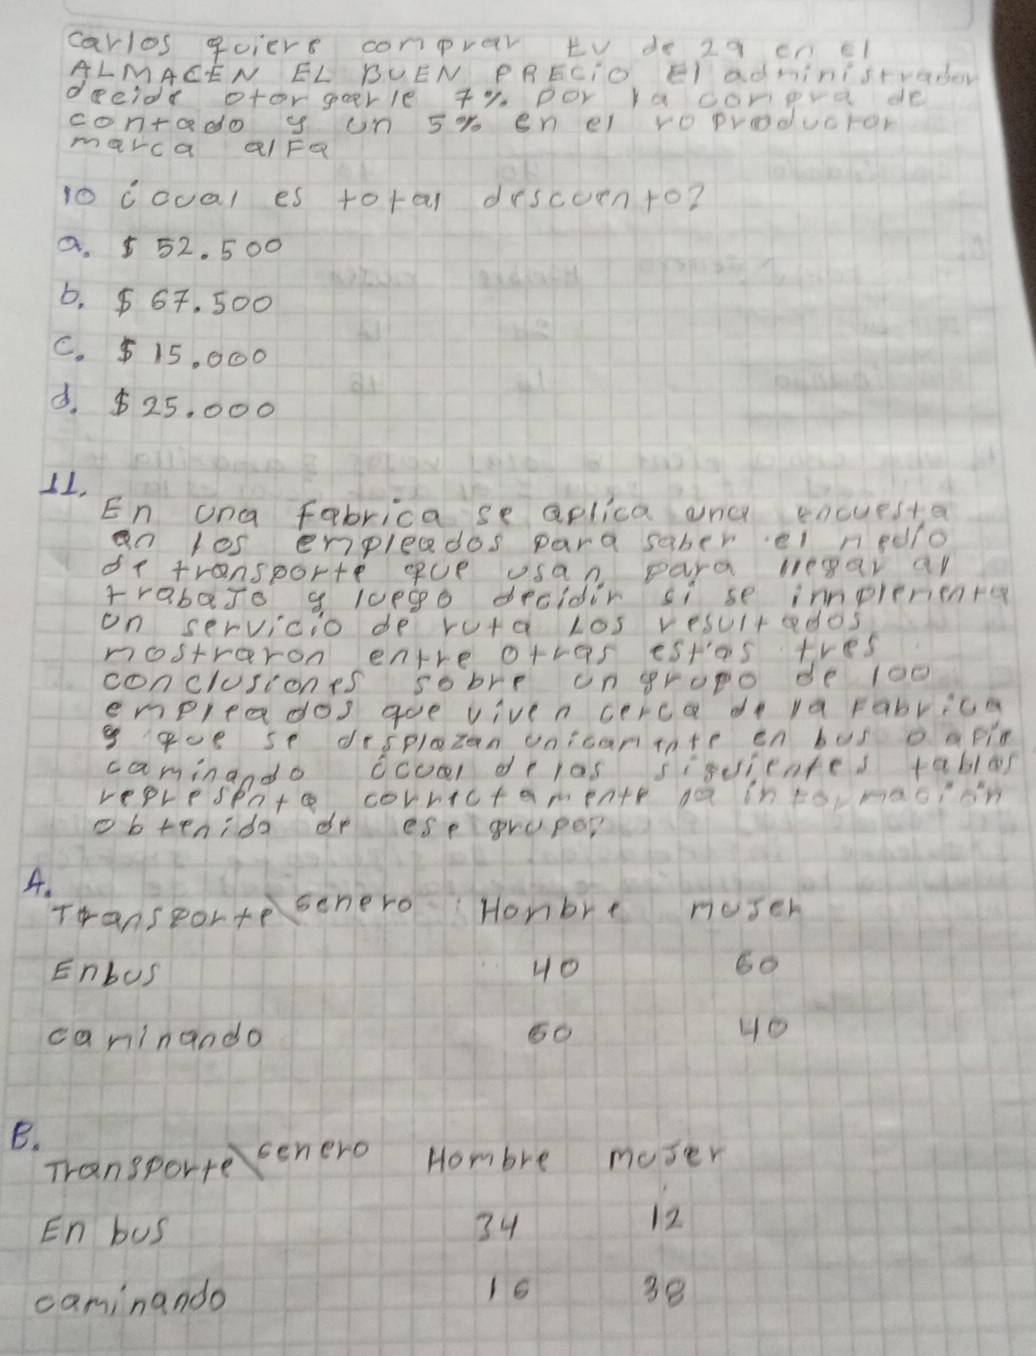 carlos quiere comprar tv de 29 en el
ALMACEN EL BUEN PRECIO El administrador
decide otorgarle 7% por la compra de
contado y un 5% en el roproductor
marca alFa
10 ¿cual es total descuento?
a. $ 52.500
b. $ 67.500
c. $ 15.000
d. $ 25.000
11.
En una fabrica se aplica una encuesta
an los empleados para saber el medio
de transporte que usan para llegar al
trabajo y luego decidir si se inmplementa
un servicio de ruta Los resultados
mostraron entre otras estas tres
conclusiones sobre un grupo de 100
empleados que viven cerca de la Fabrica
y que se desplazan unicamente en bus o apie
caminando ¿cual de las siguientes tablas
representa correctamente la información
obtenida de ese grupo?
A.
Transporte \ Genero Hombre mujer
Enbus 40 60
caminando 60 40
B.
Transporte \ Genero Hombre mujer
En bus 34 12
caminando 16 38